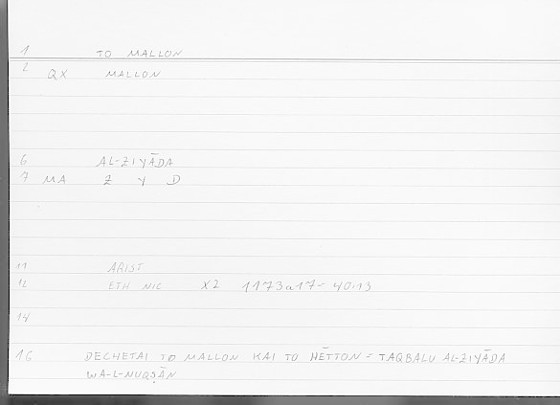 1 TO MALLON
2 QX MALLON
6 AL-ZIYĀDA
7 MA Z Y D
11 ARIST
12 ETH NIC X2 1173a17 = 40.13
14
16 DECHETAI TO MALLON KAI TO HĒTTON = TAQBALU AL-ZIYĀDA
WA-L-NUQṢĀN